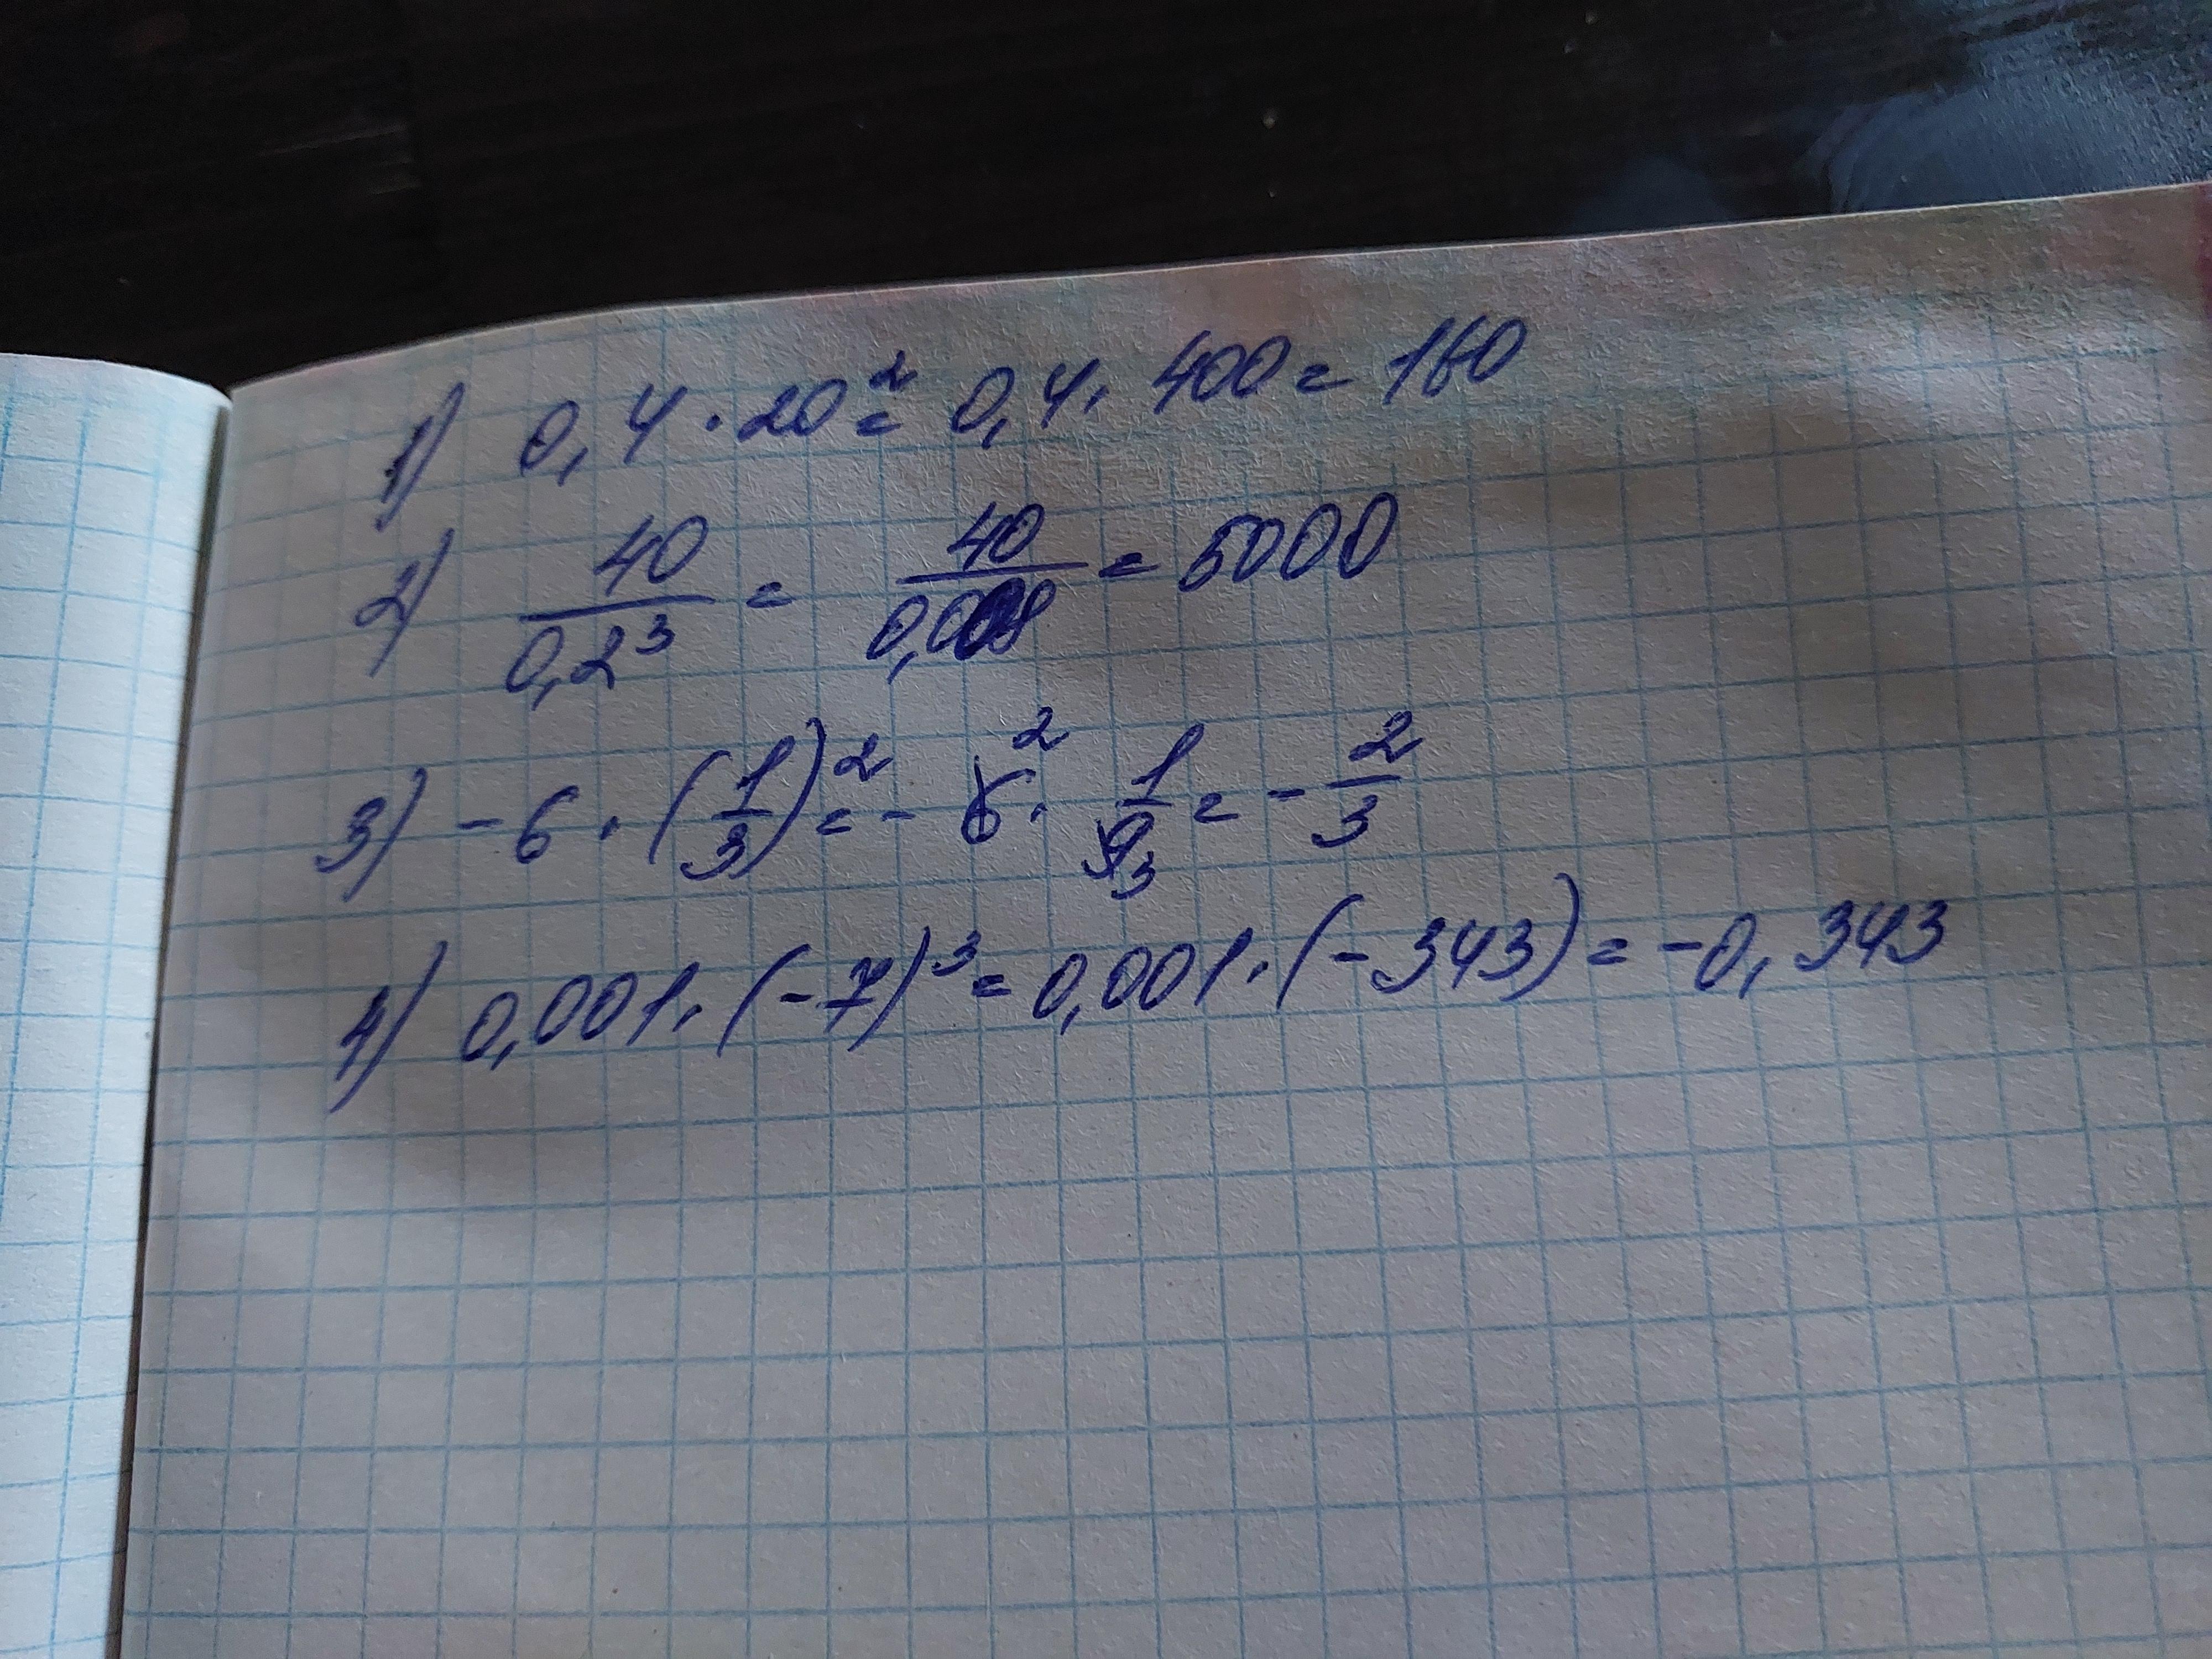 1) 0,4 · 20² = 0,4 · 400 = 160
2) 40/0,2³ = 40/0,008 = 5000
3) -6 · (1/3)² = - 6² · 1/9₃ = - 2/3
4) 0,001 · (-7)³ = 0,001 · (-343) = -0,343